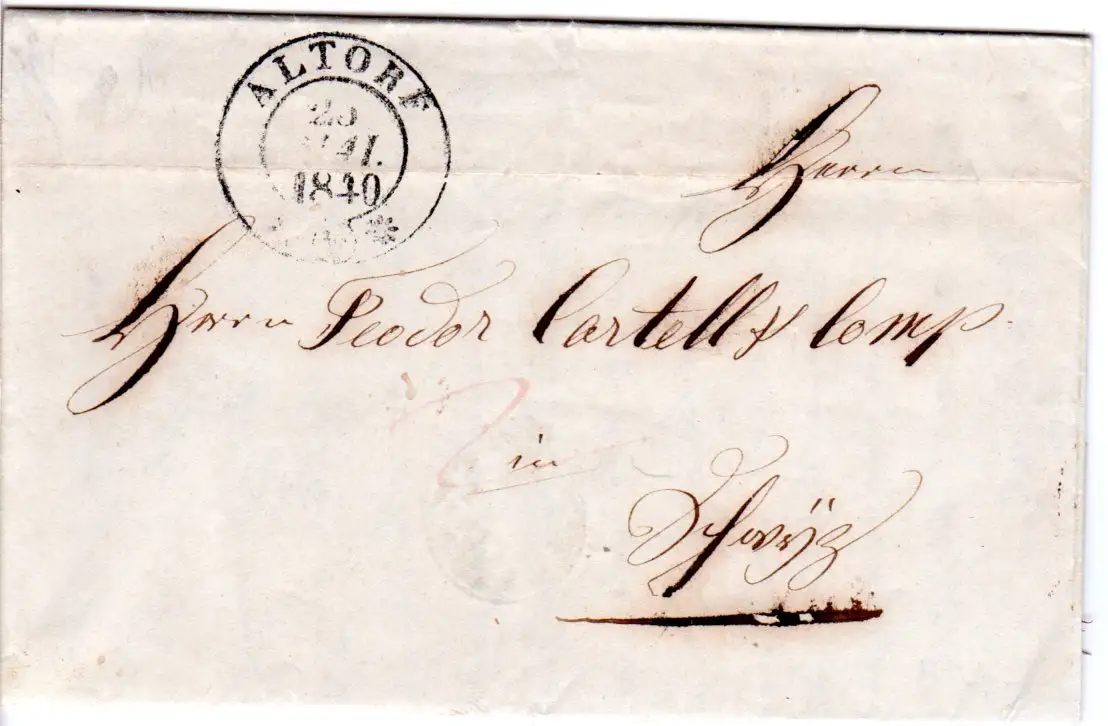 ALTORF
25
MAI.
1840
Herrn
Herrn Teodor Castell & Comp
in
Schwÿz